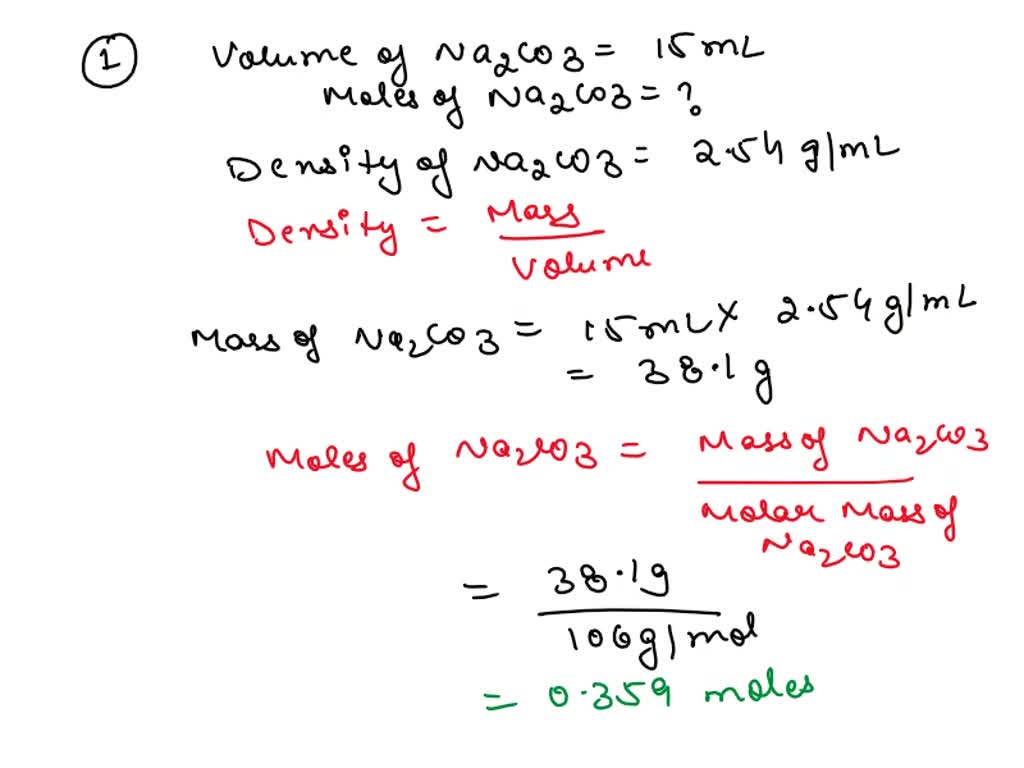 1 Volume of Na2CO3 = 15 mL
Moles of Na2CO3 = ?
Density of Na2CO3 = 2.54 g/mL
Density = Mass
Volume
Mass of Na2CO3 = 15 mL X 2.54 g/mL
= 38.1 g
Moles of Na2CO3 = Mass of Na2CO3
Molar Mass of
Na2CO3
= 38.1g
106g/mol
= 0.359 moles